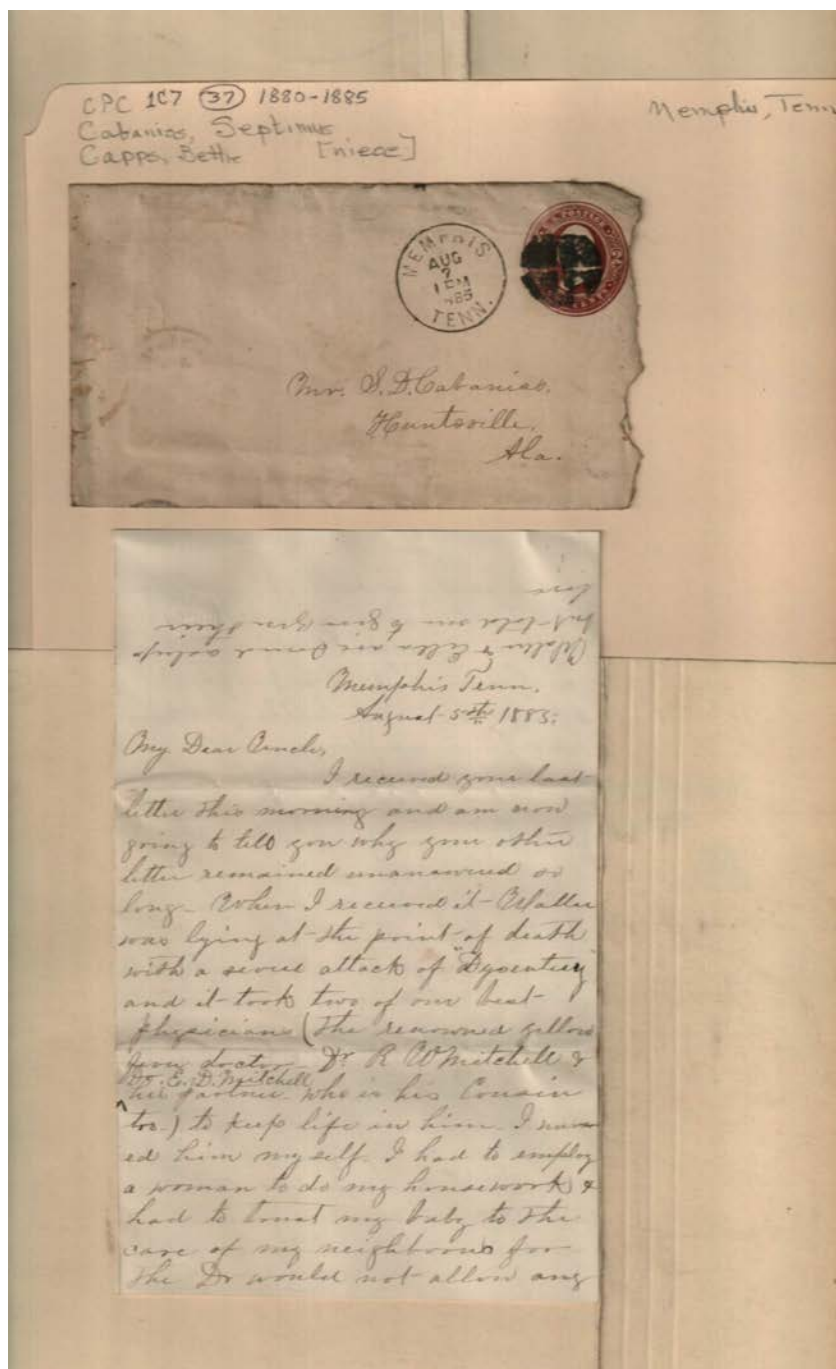 CPC 1C7 (37) 1880-1885
Memphis, Tenn
Cabaniss, Septimus
Capps, Bettie [niece]
MEMPHIS
AUG
7
1 PM
1885
TENN.
Mr. S. D. Cabaniss.
Huntsville,
Ala.
Walter & Ella are sound asleep
but told me to give you their
love
Memphis Tenn.
August 5th 1885.
My Dear Uncle,
I received your last
letter this morning and am now
going to tell you why your other
letter remained unanswered so
long. When I received it Walter
was lying at the point of death
with a severe attack of "Dysentery"
and it took two of our best
physicians (the renowned yellow
fever doctor Dr R W Mitchell &
Dr. E. D. Mitchell
his partner who is his Cousin
too.) to keep life in him. I nurs
ed him myself. I had to employ
a woman to do my housework &
had to trust my baby to the
care of my neighbours for
the Dr would not allow any